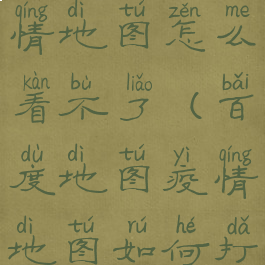 qíng dì tú zěn me
情地图怎么
kàn bù liǎo bǎi
看不了（百
dù dì tú yì qíng
度地图疫情
dì tú rú hé dǎ
地图如何打